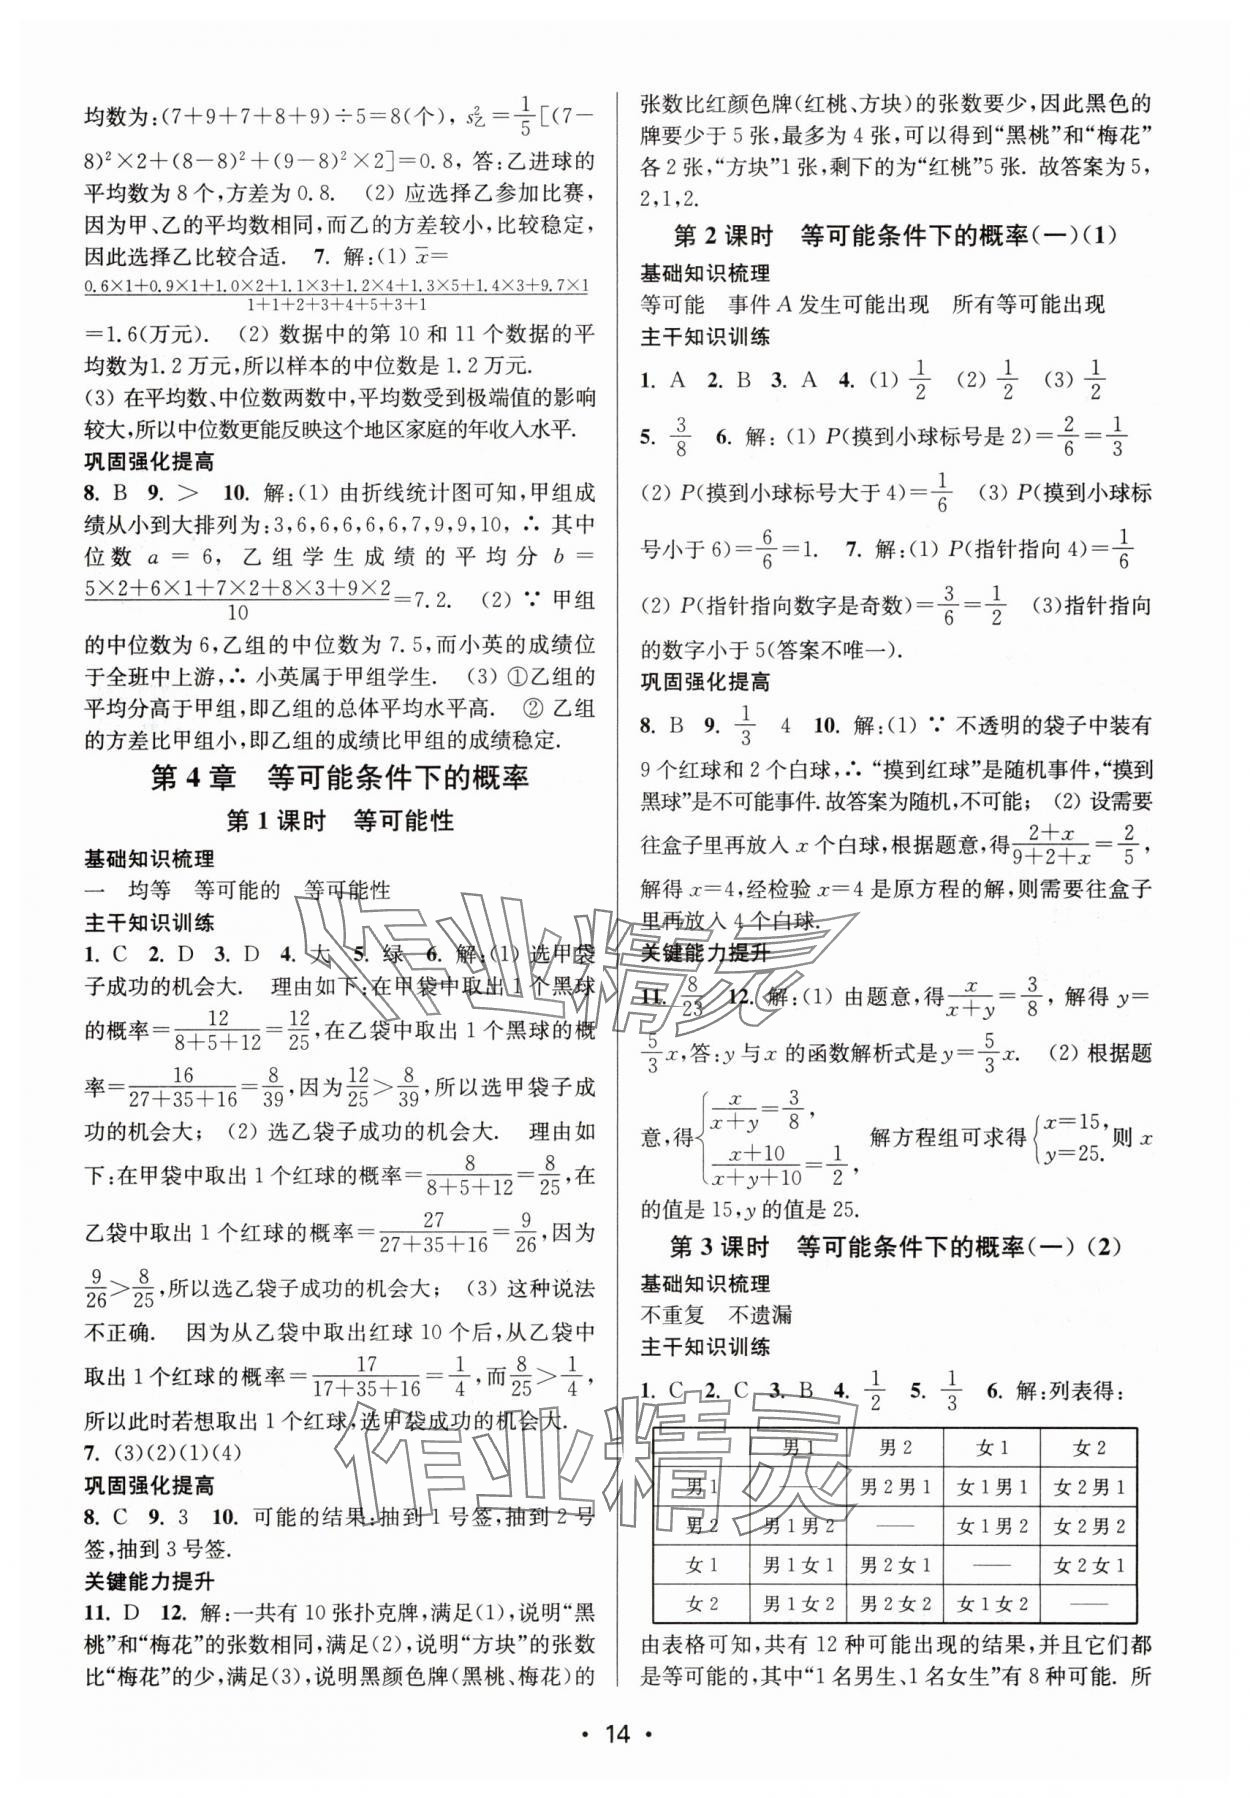 均数为:(7+9+7+8+9)÷5=8(个), s²乙=1/5[(7-
8)²×2+(8-8)²+(9-8)²×2]=0.8,答:乙进球的
平均数为 8 个,方差为 0.8. (2) 应选择乙参加比赛,
因为甲、乙的平均数相同,而乙的方差较小,比较稳定,
因此选择乙比较合适. 7. 解:(1) x̄=
(0.6×1+0.9×1+1.0×2+1.1×3+1.2×4+1.3×5+1.4×3+9.7×1)/(1+1+2+3+4+5+3+1)
=1.6(万元). (2) 数据中的第 10 和 11 个数据的平
均数为1.2万元,所以样本的中位数是 1.2 万元.
(3) 在平均数、中位数两数中,平均数受到极端值的影响
较大,所以中位数更能反映这个地区家庭的年收入水平.
巩固强化提高
8. B 9. > 10. 解:(1) 由折线统计图可知,甲组成
绩从小到大排列为:3,6,6,6,6,6,7,9,9,10, ∴ 其中
位数 a = 6, 乙组学生成绩的平均分 b =
(5×2+6×1+7×2+8×3+9×2)/10=7.2. (2) ∵ 甲组
的中位数为 6,乙组的中位数为 7.5,而小英的成绩位
于全班中上游,∴ 小英属于甲组学生. (3) ①乙组的
平均分高于甲组,即乙组的总体平均水平高. ② 乙组
的方差比甲组小,即乙组的成绩比甲组的成绩稳定.
第 4 章 等可能条件下的概率
第 1 课时 等可能性
基础知识梳理
一 均等 等可能的 等可能性
主干知识训练
1. C 2. D 3. D 4. 大 5. 绿 6. 解:(1) 选甲袋
子成功的机会大. 理由如下:在甲袋中取出 1 个黑球
的概率=12/(8+5+12)=12/25,在乙袋中取出 1 个黑球的概
率=16/(27+35+16)=8/39,因为12/25>8/39,所以选甲袋子成
功的机会大; (2) 选乙袋子成功的机会大. 理由如
下:在甲袋中取出 1 个红球的概率=8/(8+5+12)=8/25,在
乙袋中取出 1 个红球的概率=27/(27+35+16)=9/26,因为
9/26>8/25,所以选乙袋子成功的机会大; (3) 这种说法
不正确. 因为从乙袋中取出红球 10 个后,从乙袋中
取出 1 个红球的概率=17/(17+35+16)=1/4,而8/25>1/4,
所以此时若想取出 1 个红球,选甲袋成功的机会大.
7. (3)(2)(1)(4)
巩固强化提高
8. C 9. 3 10. 可能的结果:抽到 1 号签,抽到 2 号
签,抽到 3 号签.
关键能力提升
11. D 12. 解:一共有 10 张扑克牌,满足(1),说明“黑
桃”和“梅花”的张数相同,满足(2),说明“方块”的张数
比“梅花”的少,满足(3),说明黑颜色牌(黑桃、梅花)的
张数比红颜色牌(红桃、方块)的张数要少,因此黑色的
牌要少于 5 张,最多为 4 张,可以得到“黑桃”和“梅花”
各 2 张,“方块”1 张,剩下的为“红桃”5 张. 故答案为 5,
2,1,2.
第 2 课时 等可能条件下的概率(一)(1)
基础知识梳理
等可能 事件 A 发生可能出现 所有等可能出现
主干知识训练
1. A 2. B 3. A 4. (1) 1/2 (2) 1/2 (3) 1/2
5. 3/8 6. 解:(1) P(摸到小球标号是 2)=2/6=1/3
(2) P(摸到小球标号大于 4)=1/6 (3) P(摸到小球标
号小于 6)=6/6=1. 7. 解:(1) P(指针指向 4)=1/6
(2) P(指针指向数字是奇数)=3/6=1/2 (3)指针指向
的数字小于 5(答案不唯一).
巩固强化提高
8. B 9. 1/3 4 10. 解:(1) ∵ 不透明的袋子中装有
9 个红球和 2 个白球,∴ “摸到红球”是随机事件,“摸到
黑球”是不可能事件.故答案为随机,不可能; (2) 设需要
往盒子里再放入 x 个白球,根据题意,得(2+x)/(9+2+x)=2/5,
解得 x=4,经检验 x=4 是原方程的解,则需要往盒子
里再放入 4 个白球.
关键能力提升
11. 8/23 12. 解:(1) 由题意,得x/(x+y)=3/8, 解得 y=
5/3x,答:y 与 x 的函数解析式是 y=5/3x. (2) 根据题
意,得{x/(x+y)=3/8, (x+10)/(x+y+10)=1/2, 解方程组可求得{x=15, y=25. 则 x
的值是 15,y 的值是 25.
第 3 课时 等可能条件下的概率(一)(2)
基础知识梳理
不重复 不遗漏
主干知识训练
1. C 2. C 3. B 4. 1/2 5. 1/3 6. 解:列表得:
男 1 男 2 女 1 女 2
男 1 —— 男 2 男 1 女 1 男 1 女 2 男 1
男 2 男 1 男 2 —— 女 1 男 2 女 2 男 2
女 1 男 1 女 1 男 2 女 1 —— 女 2 女 1
女 2 男 1 女 2 男 2 女 2 女 1 女 2 ——
由表格可知,共有 12 种可能出现的结果,并且它们都
是等可能的,其中“1 名男生、1 名女生”有 8 种可能. 所
• 14 •
作业精灵
作业精灵